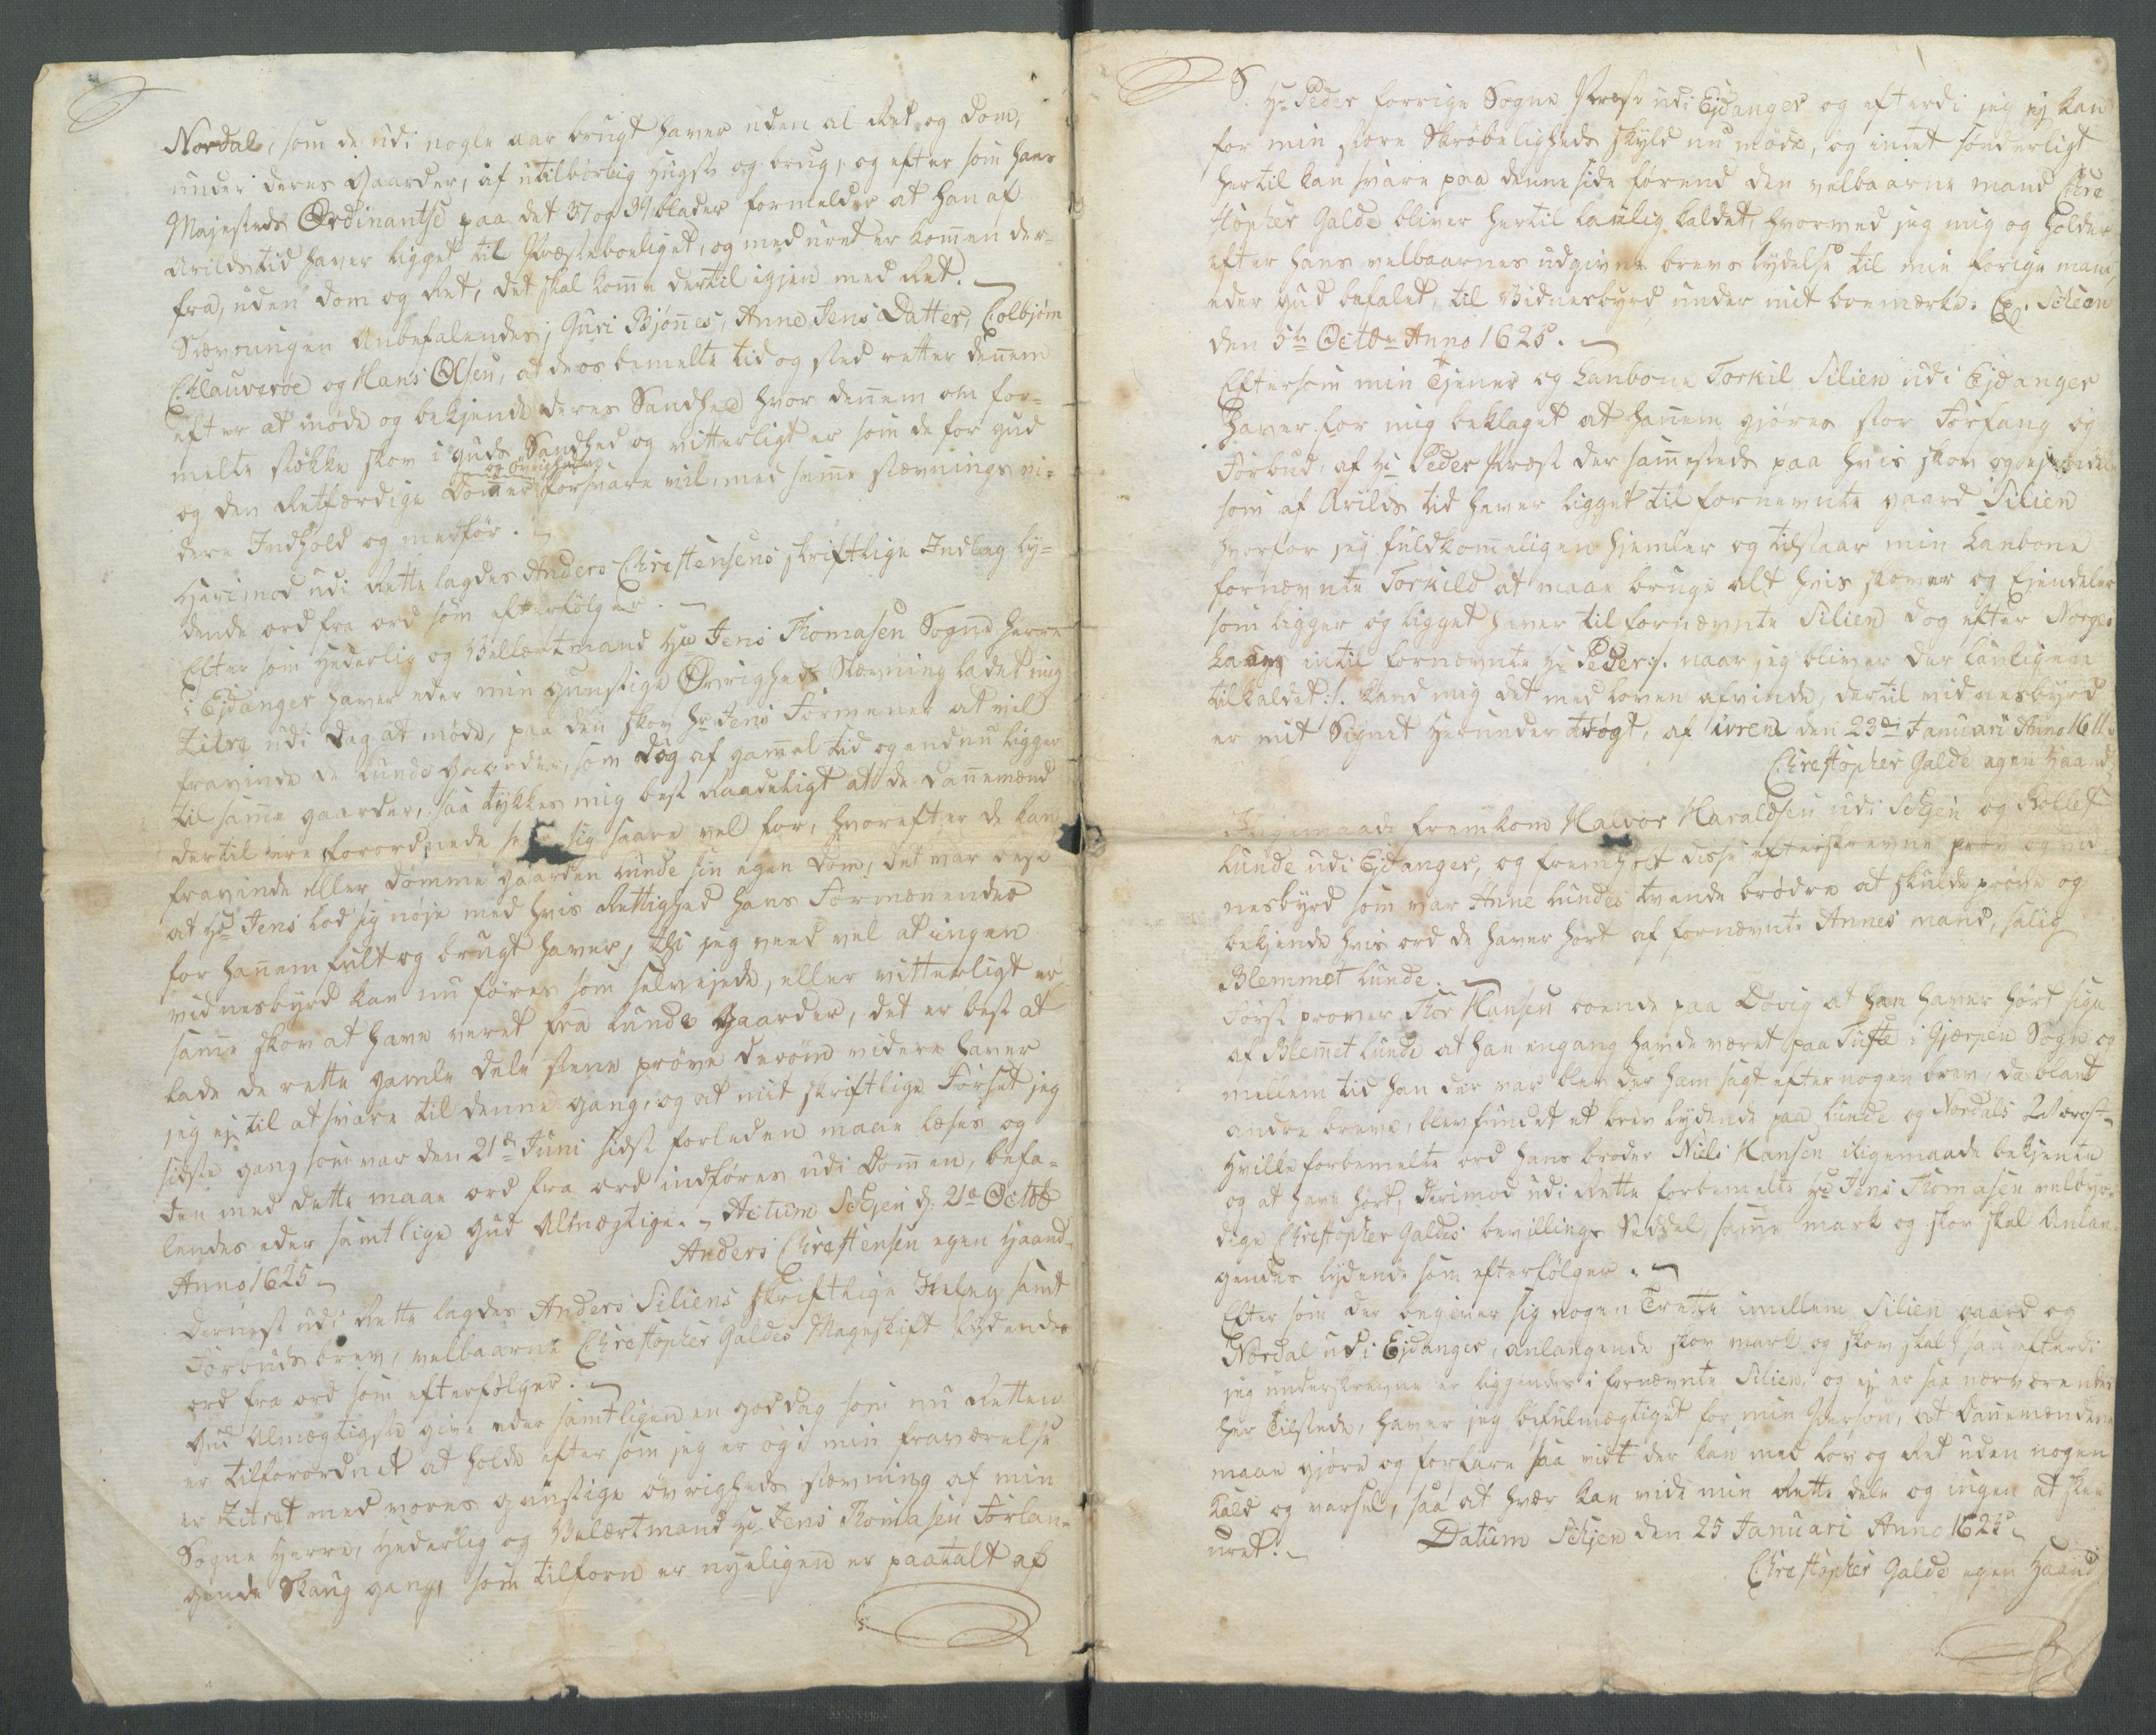 Nordal, som de udi nogle aar brugt haver uden al Ret og dom,
under deres Gaarder, af utilbørlig hugst og brug, og efter som hans
Majesteds Ordinantse paa det 37 og 39 blader formelder at han af
Arildstid haver ligget til Præsteboeliget, og med uret er komen der-
fra, uden dom og Ret, det skal kome dertil igjen med Ret.
Stævningen Anbefalendes; Guri Bjönnes, Anne Jens Datter, Colbjörn
Clauveroe og Hans Olsen, at de os bemelte tid og sted retter dennem
efter at möde og bekjende deres Sandhed hvor dennem om for-
melte stökke skov i guds Sandhed og vitterligt er som de for gud
og øvrigheden
og den Retfærdige Dommer forsvare vil, med samme stævnings vi-
dere Indhold og medför.
Herimod udi Rette lagdes Anders Christensens skriftlige Indlæg ly-
dende ord fra ord som efterfölger.
Efter som Hæderlig og Vellært mand Hr Jens Thomasen Sogne Herre
i Ejdanger haver eder min gunstige Övrigheds Stævning ladet mig
Zitre udi dag at möde, paa den skov Hr Jens Formener at vil
fravinde de Lunde Gaarder, som dog af gamel tid og endnu ligger
til same gaarder, saa tykkes mig best Raadeligt at de Dannemænd
dertil ere forordnede se sig saare vel for, hvorefter de kan
fravinde eller dömme gaarden Lunde sin egen Dom, det var best
at Hr Jens lod sig nöje med hvis Rettighed hans Formænender
for hannem fült og brugt haver, thi jeg veed vel at ingen
vidnesbyrd kan nu föres som selvejede, eller vitterligt er
same skov at have veret fra Lunde Gaarder, det er best at
lade de rette gamle dele stene pröve derom videre haver
jeg ej til at svare til denne gang, og at mit skriftlige Forset jeg
sidste gang som var den 21de Juni sidst forleden maae læses og
den med dette maae ord fra ord indföres udi Dommen, befa-
lendes eder samtlige Gud Almægtige. Actum Schjen d. 21de Octob
Anno 1625 Anders Christensen egen Haand
Dernest udi Rette lagdes Anders Siliens skriftlige Indleg samt
Forbuds brev, velbaarne Christopher Galdes Mageskift lydende
ord fra ord som efterfölger.
Gud Almægtigste give eder samtligen en god dag som nu Retten
er tilforordnet at holde efter som jeg er og i min fraværelse
er Zitret med vores gunstige övrigheds stævning af min
Sogne Herre, Hæderlig og Velært mand Hr Jens Thomasen Forlan-
gende Skaug gang, som tilforn er nyeligen er paatalt af
S. Hr Peder forrige Sogne Præst udi Ejdanger og efterdi jeg ej kan
for min store Skröbeligheds skyld nu möde, og intet sönderligt
hertil kan svare paa denne side förend den velbaarne mand Chre
stopher Galde bliver hertil lovlig kaldet, hvormed jeg mig og holder
efter hans velbaarnes udgivne brevs lydelse til min forige mand,
eder gud befalet, til Vidnesbyrd under mit bomærke. Ex. Schien
den 5te Octbr Anno 1625.
Eftersom min Tjener og Lanbone Torkil Silien udi Ejdanger
haver for mig beklaget at hannem gjöres stor Forfang og
Forbud, af Hr Peder Præst der sammesteds paa hvis skov og ejendele
som af Arilds tid haver ligget til fornevnte gaard Silien
hvorfor jeg fuldkommeligen hjemler og tilstaar min Lanbone
fornævnte Torkild at maae bruge alt hvis skover og Ejendeler
som ligger og ligget haver til fornævnte Silien dog efter Norges
Laug intil fornævnte Hr Peder :/. naar jeg bliver der lauligen
tilkaldet :/. kand mig det med loven afvinde, dertil vidnesbyrd
er mit Signet herunder trögt, af den 23de Januari Anno 1611
Christopher Galde egen Haand
Ligemaade fremkom Halvor Haraldsen udi Schjen og Rollef
Lunde udi Ejdanger, og fremholt disse efterskrevne pröv og vid
nesbyrd som var Anne Lundes tvende brödre at skulde pröve og
bekjende hvis ord de haver hört af fornævnte Annes mand, salig
Blemmet Lunde.
Först prover Thor Hansen boende paa Dövig at han haver hört sige
af Blemet Lunde at han engang havde været paa Tufte i Gjærpen Sogn og
mellem tid han der var blev der ham sagt efter nogen brev, da blant
andre breve, blev fundet et brev lydende paa Lunde og Nordals
Hville forbemelte ord hans broder Niels Hansen iligemaade bekjente
og at have hört, Derimod udi Rette forbemelte Hr Jens Thomasen velbyr-
dige Christopher Galdes bevillings Seddel, same mark og skov skal Anlan-
gendes lydende som efterfölger.
Efter som der begiver sig nogen Trette imellem Silien gaard og
Nordal udi Ejdanger, anlangende skov mark og skov skal, saa efterdi
jeg underskrevne er liggendes i fornævnte Silien, og ej er saa nærværendes
her Tilstede, haver jeg befulmægtiget for min Person, at Dannemændene
maae gjöre og forfare saa vidt der kan med Lov og Ret uden nogen
kald og varsel, saa at hver kan vide min Rette dele og ingen at skee
uret. Datum Schjen den 25 Januari Anno 1625
Christopher Galde egen Haand